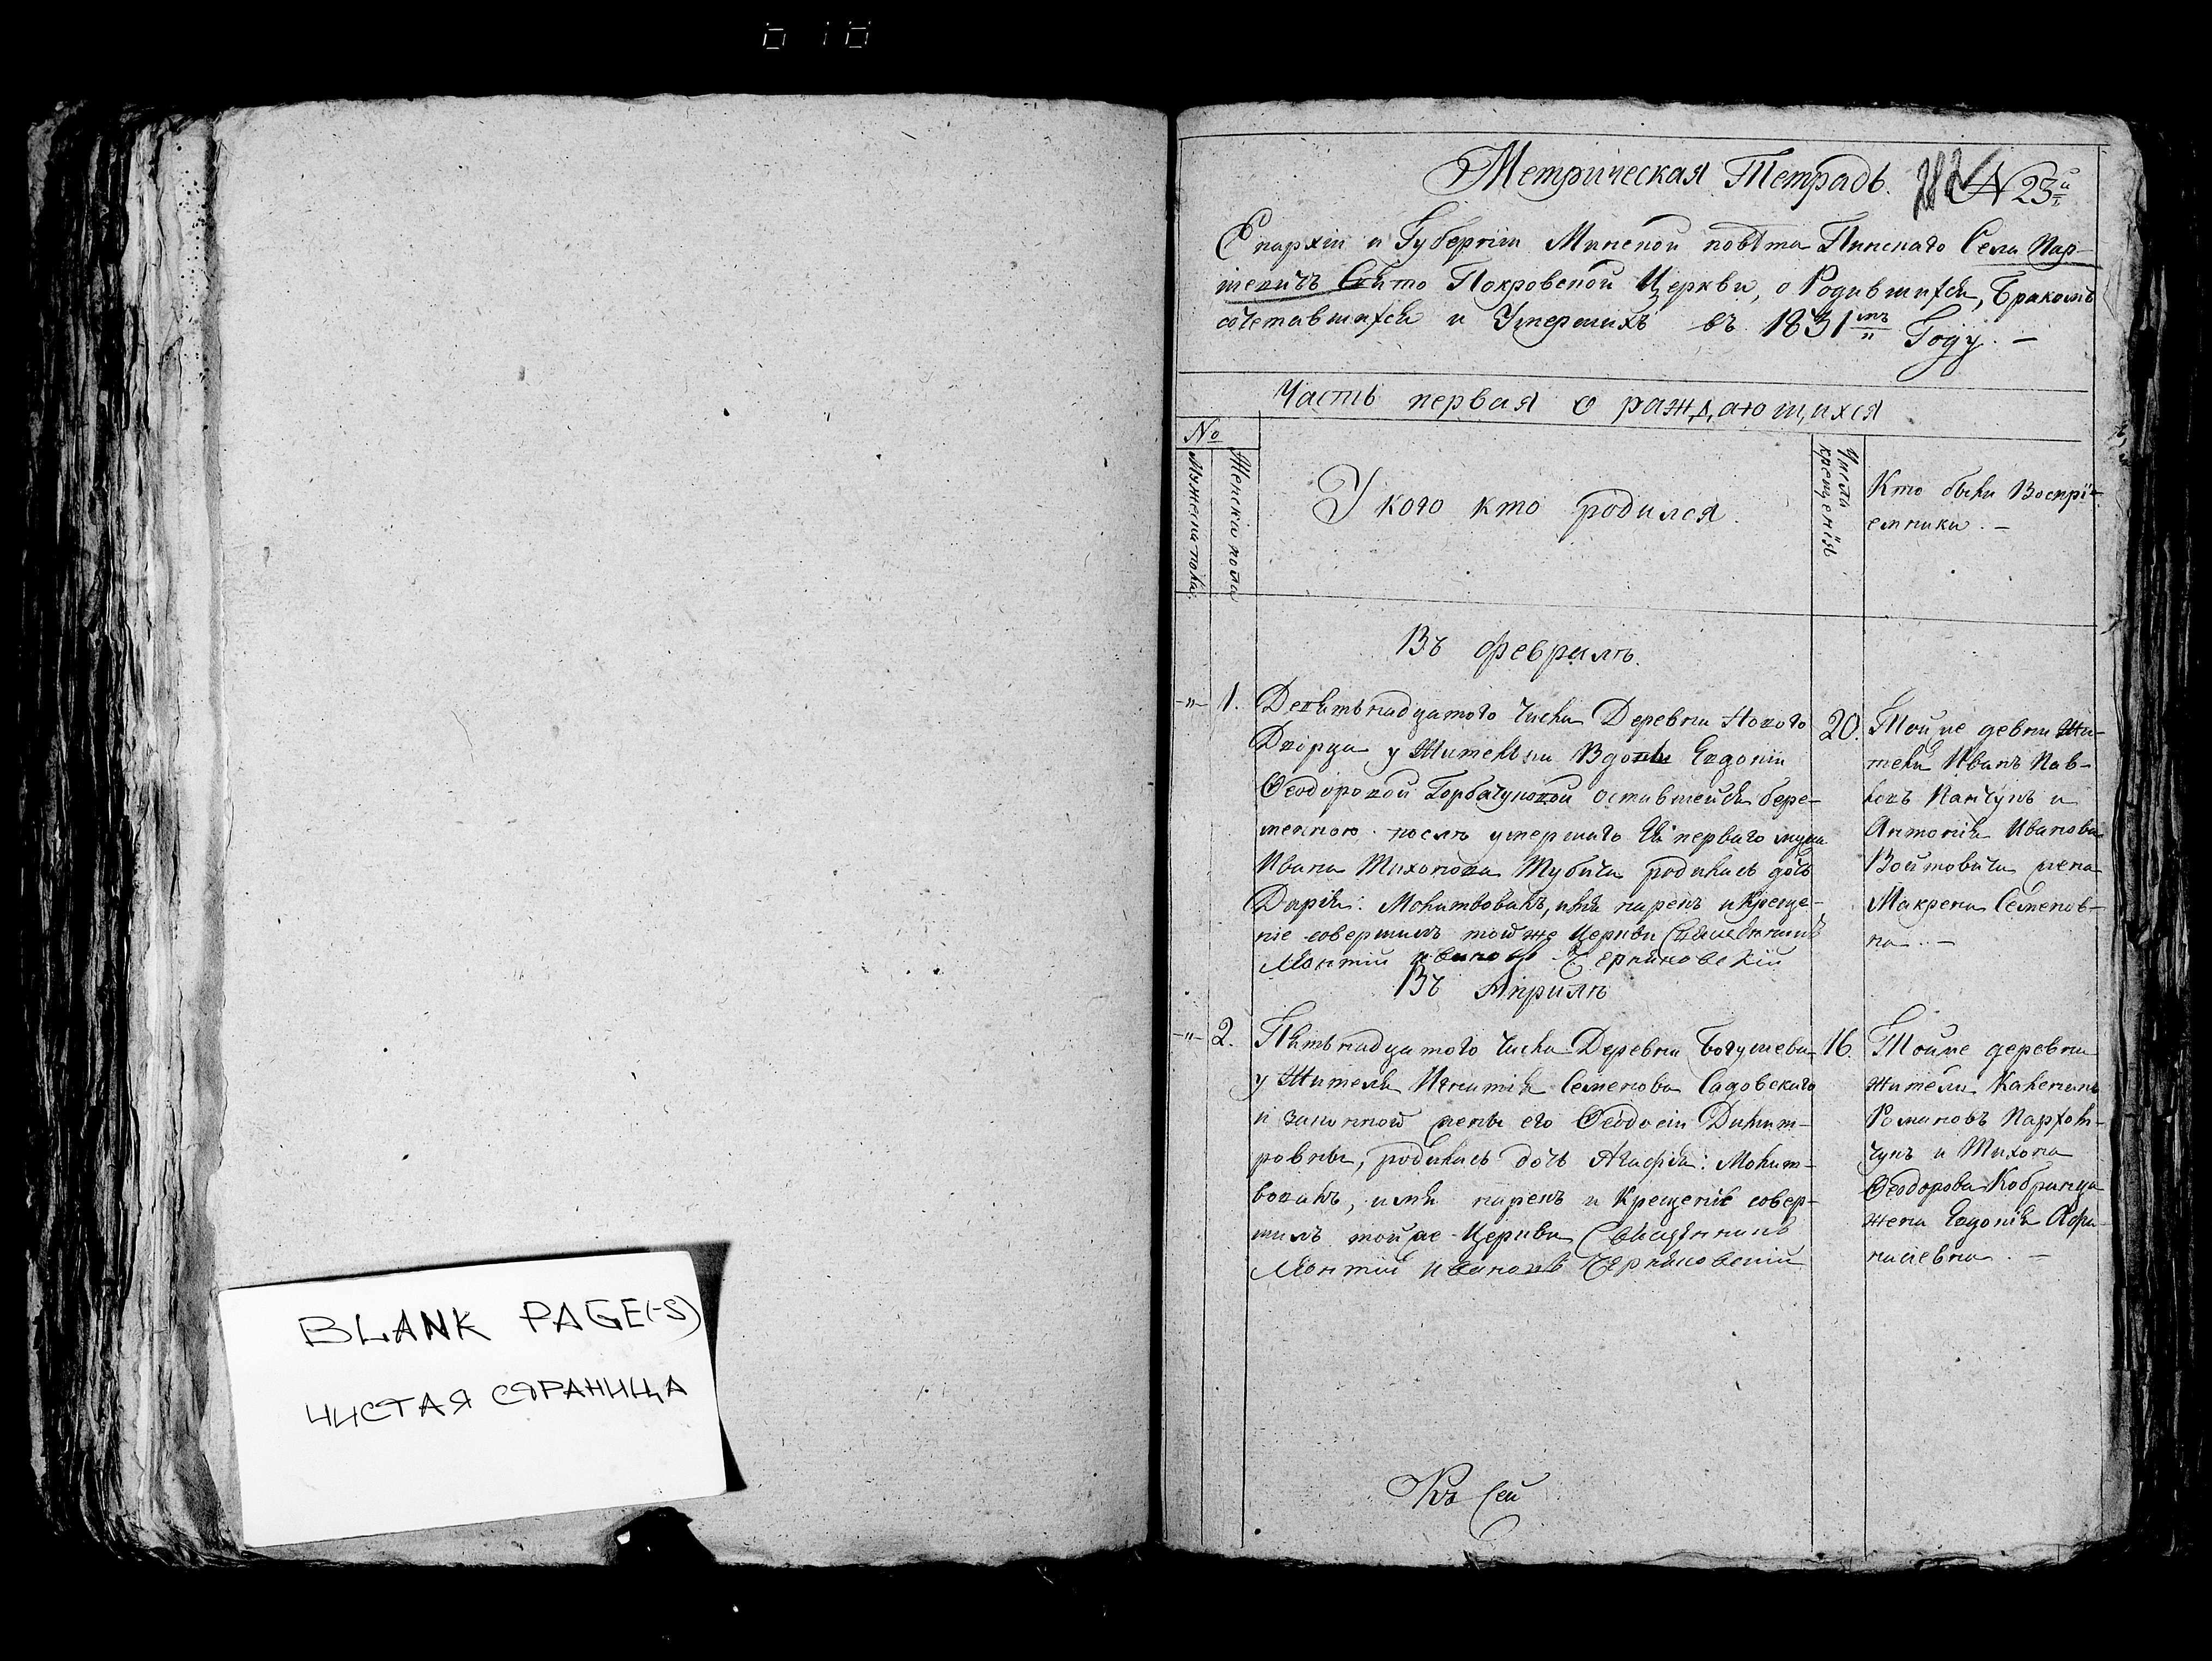 BLANK PAGE(-S)
ЧИСТАЯ СТРАНИЦА
Метрическая Тетрадь. 282 N 23й
Епархіи и Губерніи Минской повѣта Пинскаго Села Пар-
шевичъ Свято Покровской Церкви, о Родившихся, Бракомъ
сочетавшихся и Умершихъ въ 1831мъ Году. —
Часть первая о раждающихся
№
Мужеска пола.
Женска пола
У кого кто родился.
Число крещенія
Кто были Воспрі-
емники. —
Въ Февралѣ.
-"- 1.
Девятьнадцатого Числа Деревни Нового
Дворца у Жительки Вдовы Евдокіи
Ѳеодоровой Горбачуковой оставшейся бере-
менною после умершаго Ея перваго мужа
Ивана Тихонова Шубича родилась дочь
Дарія: Молитвовалъ, имя нарекъ и Креще-
ніе совершилъ той же Церкви Священникъ
Леонтій Ивановъ Черняковскій
20.
Той же девни Жи-
тели Иванъ Пав-
ловъ Панчукъ и
Антонія Иванова
Войтовича жена
Макрена Семенов-
на. —
Въ Априлѣ
-"- 2.
Пятьнадцатого Числа Деревни Богушева
у Жителя Игнатія Семенова Садовскаго
и законной жены его Ѳеодосіи Димит-
ровны, родилась дочь Агафія: Молит-
вовалъ, имя нарекъ и Крещеніе совер-
шилъ той же Церкви Священникъ
Леонтій Ивановъ Черняковскій
16.
Той же деревни
жители Калении
Романовъ Пархом-
чукъ и Тихона
Ѳеодорова Кобринца
жена Евдокія Афа-
насіевна. —
Къ Сей